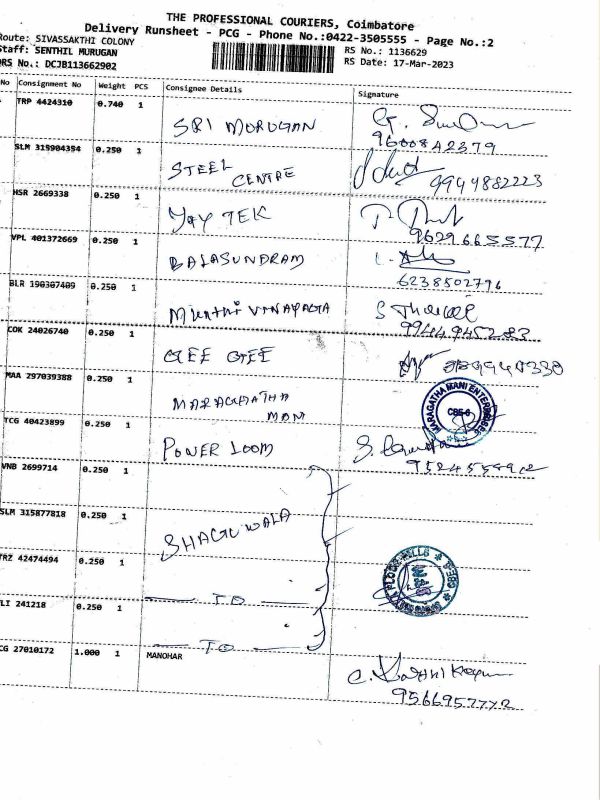 THE PROFESSIONAL COURIERS, Coimbatore
Delivery Runsheet - PCG - Phone No.:0422-3505555 - Page No.:2
Route: SIVASSAKTHI COLONY
Staff: SENTHIL MURUGAN
DRS No.: DCJB113662902
RS No.: 1136629
RS Date: 17-Mar-2023
No Consignment No Weight PCS Consignee Details Signature
TRP 4424310 0.740 1 SRI MURUGAN
SLM 315904354 0.250 1 STEEL CENTRE 9944882223
HSR 2669338 0.250 1 TEK 9629665577
VPL 401372669 0.250 1 BALASUNDRAM 6238502796
BLR 190307409 0.250 1
COK 24026740 0.250 1 GEE GEE
MAA 297039388 0.250 1 MARAGHATHA MANI MARAGATHA MANI ENTERPRISES CBE-6
TCG 40423899 0.250 1 POWER LOOM
VNB 2699714 0.250 1
SLM 315877818 0.250 1
TRZ 42474494 0.250 1
LI 241218 0.250 1 TO
CG 27010172 1.000 1 TO
MANOHAR
9566957772